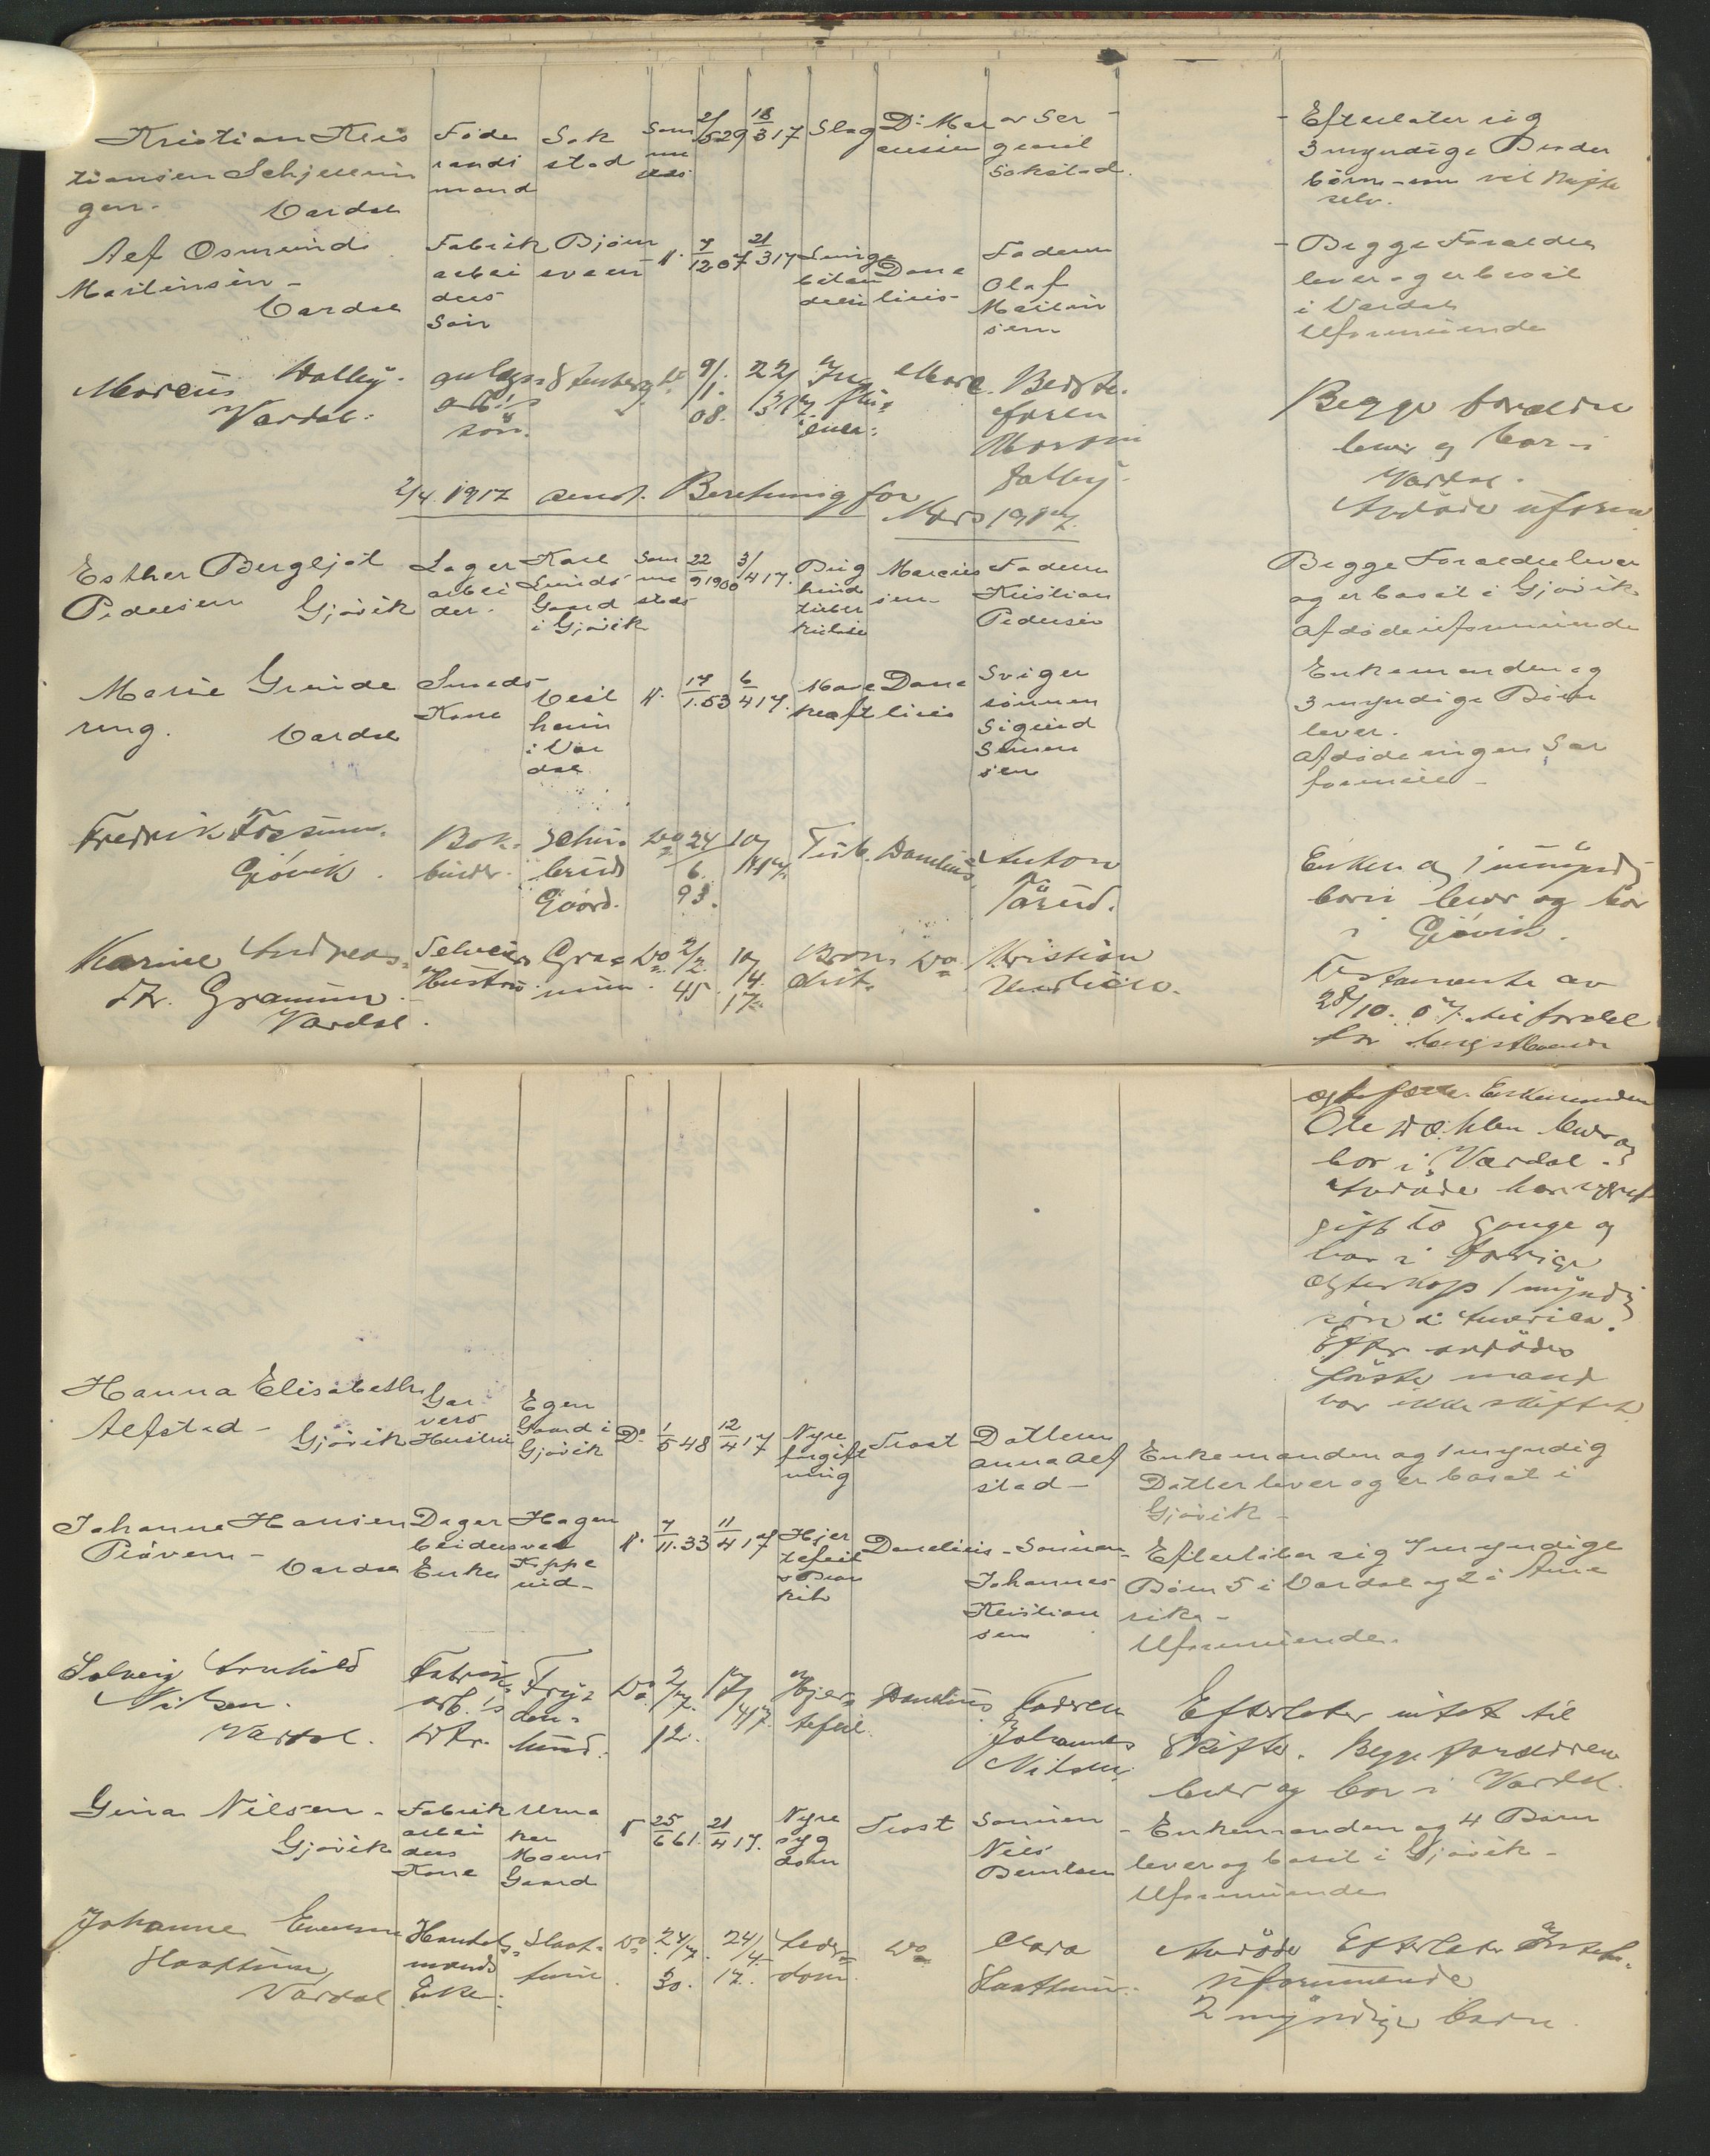 Kristian Kris
tiansen Schjerrin
gen. Vardal
Føde
raads
mand
Sok
stad
Sam
me
sted
2/5 29
18/3 17
Slag
Dr Mar
cusen
av Ser
geant
Sokstad.
- Efterlater sig
3 myndige Søsken
børn - som vil skifte
selv.
Alf Osmund
Martinsen -
Vardal
Fabrik
arbei
ders
Søn
Bjørn
sveen
7/12 07
21/3 17
Lunge
betæn
delse
Dane
lius -
Faderen
Olaf
Martin
sen
- Begge Forældre
lever og er bosat
i Vardal
Uformuende
Marcus Dalby.
Vardal.
arb.'s
søn.
9/1.
08.
22/3 17.
In
flu-
ensa.
Marc.
Bedste-
faren
Martin
Dalby.
Begge forældre
lever og bor i
Vardal.
Avdøde uform.
2/4 1917 sendt Beretning for
Mars 1917.
Esther Bergljot
Pedersen Gjøvik
Lager
arbei
der.
Karl
Lunds
Gaard
i Gjøvik
Sam
me
sted
22/9 1900
3/4 17.
Bryg
hind
tuber
kulose
Marcus
sen
Faderen
Kristian
Pedersen
Begge Forældre lever
og er bosat i Gjøvik
Afdøde uformuende
Marie Grinde
ring. Vardal
Smeds
Kone
Vest
heim
i Var
dal
17/1. 53
6/4 17.
Mave
kræft
Dane
lius
Sviger
sønnen
Sigurd
Simen
sen
Enkemanden og
3 myndige Børn
lever.
Afdøde ingen Sær
formue -
Fredrik Fossum.
Gjøvik.
Bok-
binder.
Schu-
lerud
Gaard.
Do
24/6.
93.
10/4 17.
Tub.
Danelius
Anton
Enken og 1 umyndig
barn lever og bor
i Gjøvik.
Karine Andreas-
Dtr. Gramun.
Vardal.
Selveiers
Hustru.
Gra-
mun.
Do
2/2.
45.
10/4.
17.
Bron-
chit.
Do
Kristian
Testamente av
28/10. 07. til fordel
for lengstlevende
ægtefælle. Enkemanden
Ole Dæhlen lever og
bor i Vardal.
Avdøde har været
gift to gange og
har i forrige
ægteskap 1 myndig
søn i Amerika.
Efter avdødes
første mand
var ikke skiftet.
Hanna Elisabeth
Alfstad -
Gjøvik
Gar
vers
Hustru
Egen
Gaard i
Gjøvik
Do
1/5 48
12/4 17
Nyre
forgift
ning
Trost
Datteren
Anna Alf
stad -
Enkemanden og 1 myndig
Datter lever og er bosat i
Gjøvik -
Johanne Hansen
Prøven -
Vardal
Dagar
beiders
Enke
Hagen
ved
Koppe
rud -
7/11. 33
11/4 17
Hjer
tefeil
Bron
kit
Danelius -
Sønnen -
Johannes
Kristian
sen
Efterlater sig 7 myndige
Børn 5 i Vardal og 2 i Ame
rika -
Uformuende.
Solveig Arnhild
Nilsen.
Vardal.
Fabrik-
arb.'s
Dtr.
Fry-
den-
lund.
Do
2/7.
12.
17/4 17.
Hjer-
tefeil.
Danelius
Faderen
Johannes
Nilsen.
Efterlater intet til
Skifte. Begge forældre
lever og bor i Vardal.
Gina Nilsen -
Gjøvik
Fabrik
arbei
ders
Kone
Urma
ker
Moens
Gaard
25/6 61.
21/4 17.
Nyre
syg
dom
Trost
Sønnen
Nils
Berntsen
- Enkemanden og 4 Børn
lever og bosat i Gjøvik -
Uformuende
Johanne Evensen
Haattuen,
Vardal
Handels-
mands
Enke.
Haat-
tuen.
Do
24/7.
30.
24/4.
17.
Alder-
dom
Do
Clara
Haattuen.
Avdøde Efterlater
uformuende
2 myndige børn.